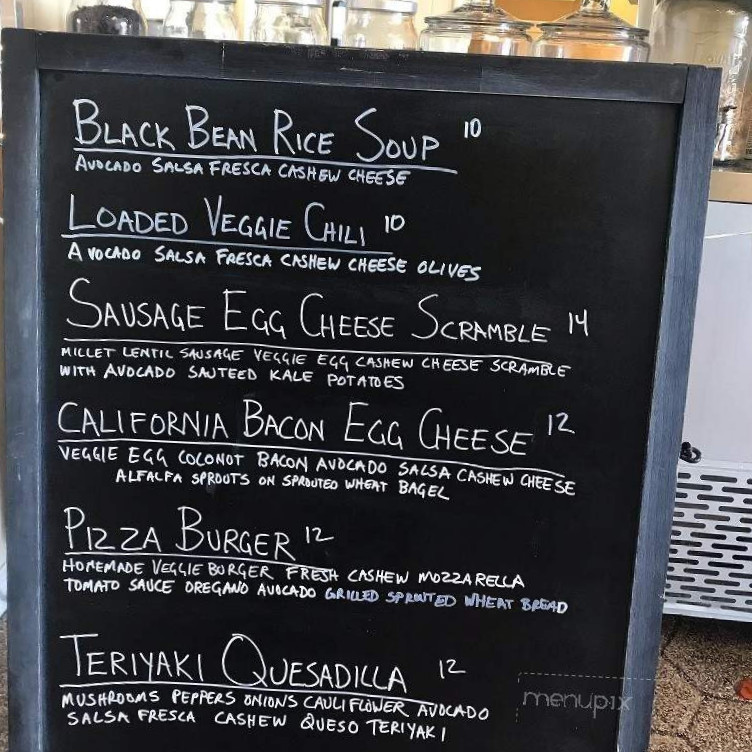 BLACK BEAN RICE SOUP 10
AVOCADO SALSA FRESCA CASHEW CHEESE
LOADED VEGGIE CHILI 10
AVOCADO SALSA FRESCA CASHEW CHEESE OLIVES
SAUSAGE EGG CHEESE SCRAMBLE 14
MILLET LENTIL SAUSAGE VEGGIE EGG CASHEW CHEESE SCRAMBLE
WITH AVOCADO SAUTEED KALE POTATOES
CALIFORNIA BACON EGG CHEESE 12
VEGGIE EGG COCONOT BACON AVOCADO SALSA CASHEW CHEESE
ALFALFA SPROUTS ON SPROUTED WHEAT BAGEL
PIZZA BURGER 12
HOMEMADE VEGGIE BURGER FRESH CASHEW MOZZARELLA
TOMATO SAUCE OREGANO AVOCADO GRILLED SPROUTED WHEAT BREAD
TERIYAKI QUESADILLA 12
MUSHROOMS PEPPERS ONIONS CAULIFLOWER AVOCADO
SALSA FRESCA CASHEW QUESO TERIYAKI
menupix